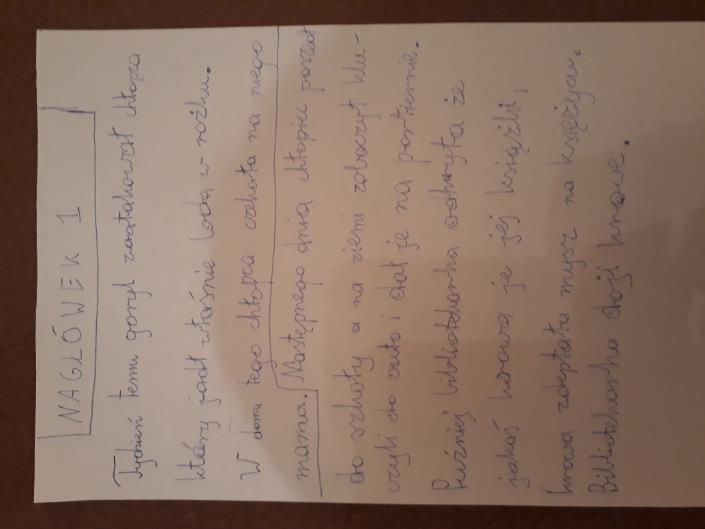 NAGŁÓWEK 1
Tydzień temu goryl zaatakował chłopca
który jadł właśnie loda w rożku.
W domu tego chłopca czekała na niego
mama. Następnego dnia chłopiec poszedł
do szkoły a na ziemi zobaczył klu-
czyki do auta i dał je na portiernie.
Puźniej bibliotekarka odkryła że
jakaś krowa je jej książki,
krowa zdeptała mysz na księżycu.
Bibliotekarka doji krowe.